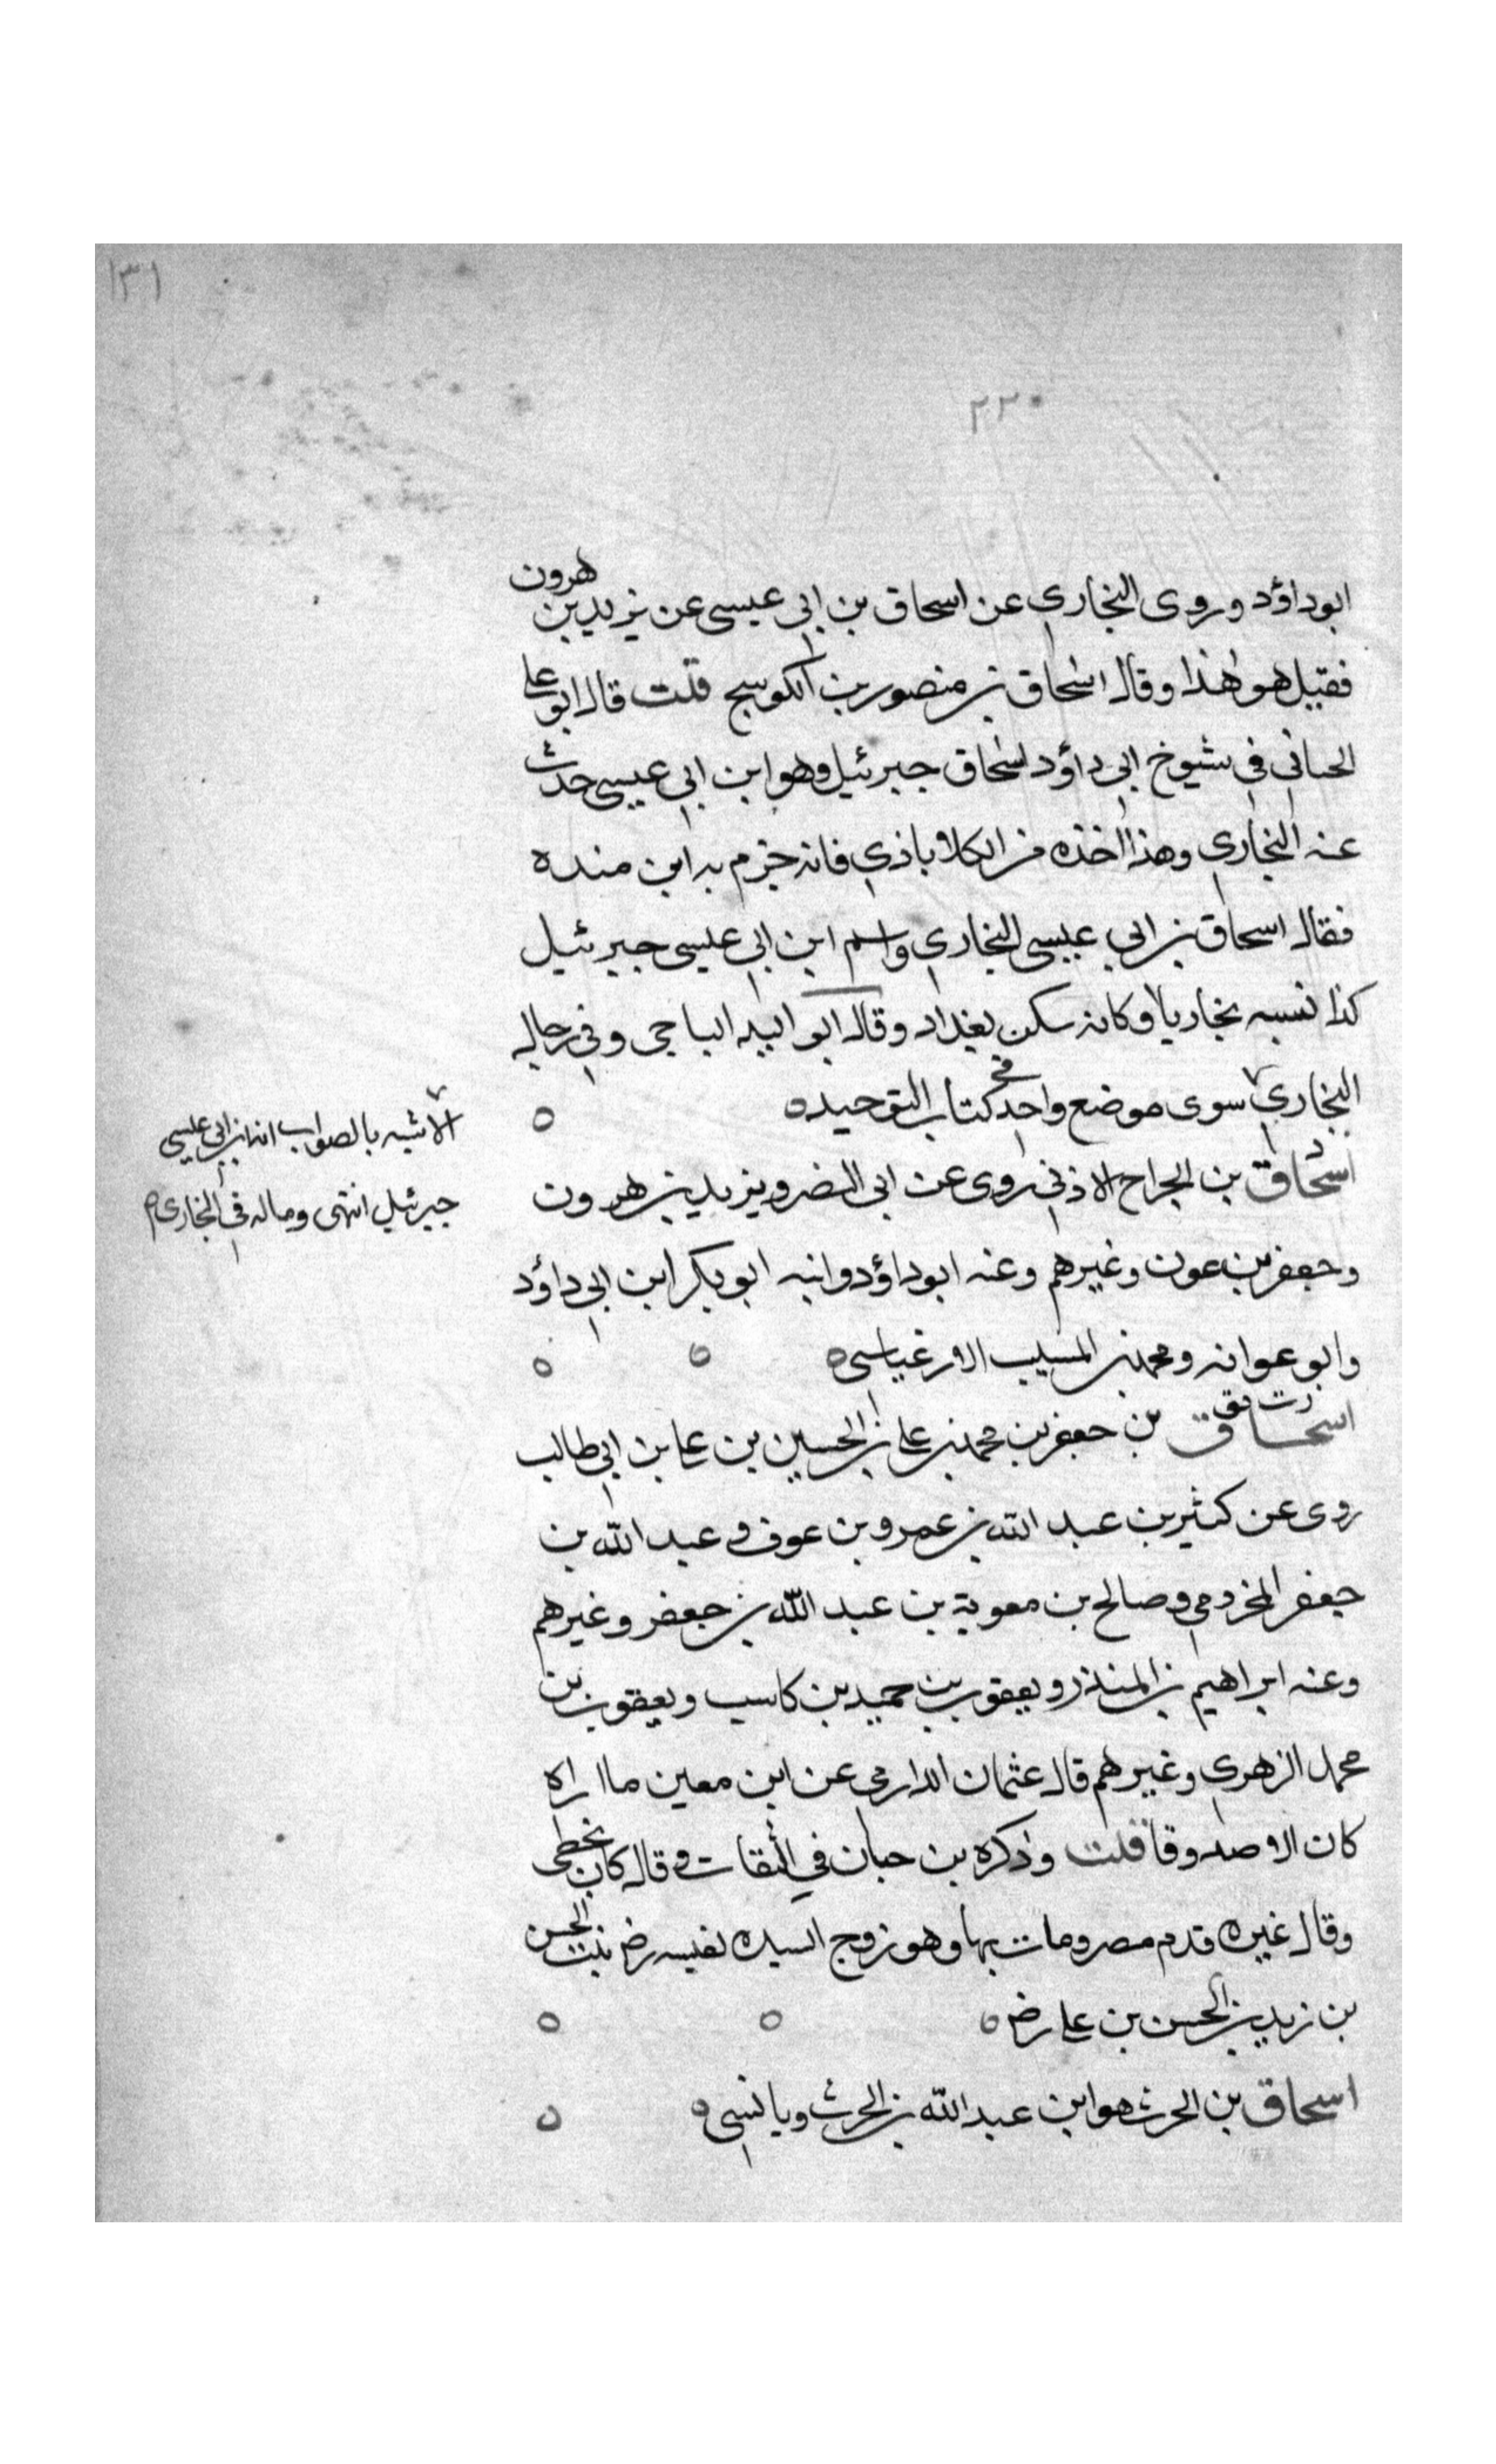 ١٣١
٢٢٠
ابو داؤد وروى البخاري عن اسحاق بن ابي عيسى عن يزيد بن هرون
فقيل هو هذا وقال اسحاق بن منصور بن الكوسج قلت قال ابو علي
الجياني في شيوخ ابي داؤد اسحاق جبرئيل وهو ابن ابي عيسى حدث
عنه البخاري وهذا اخذه من الكلاباذي فانه جزم به ابن منده
فقال اسحاق بن ابي عيسى البخاري واسم ابن ابي عيسى جبرئيل
كذا نسبه بخاريا وكانه سكن بغداد وقال ابو الباجي وفي رجال
البخاري سوى موضع واحد في كتاب التوحيد ه
الاشبه بالصواب انه ابن ابي عيسى
جبرئيل انتهى وماله في البخاري
اسحاق بن الجراح الاذني روى عن ابي النضر ويزيد بن هرون
وجعفر بن عون وغيرهم وعنه ابو داؤد وابنه ابو بكر ابن ابي داؤد
وابو عوانه ومحمد بن المسيب الارغياسى ه
ر ت ق
اسحاق بن جعفر بن محمد بن علي بن الحسين بن علي بن ابي طالب
روى عن كثير بن عبد الله بن عمرو بن عوف وعبد الله بن
جعفر المخزومي وصالح بن معوية بن عبد الله بن جعفر وغيرهم
وعنه ابراهيم بن المنذر ويعقوب بن حميد بن كاسب ويعقوب بن
محمد الزهري وغيرهم قال عثمان الدارمي عن ابن معين ما اراه
كان الا صدوقا قلت وذكره بن حبان في الثقات وقال كان يخطى
وقال غيره قدم مصر ومات بها وهو زوج السيده نفيسه رض بنت الحسن
بن زيد بن الحسن بن علي رض ه
اسحاق بن الحرث هو ابن عبد الله بن الحرث وياتي ه